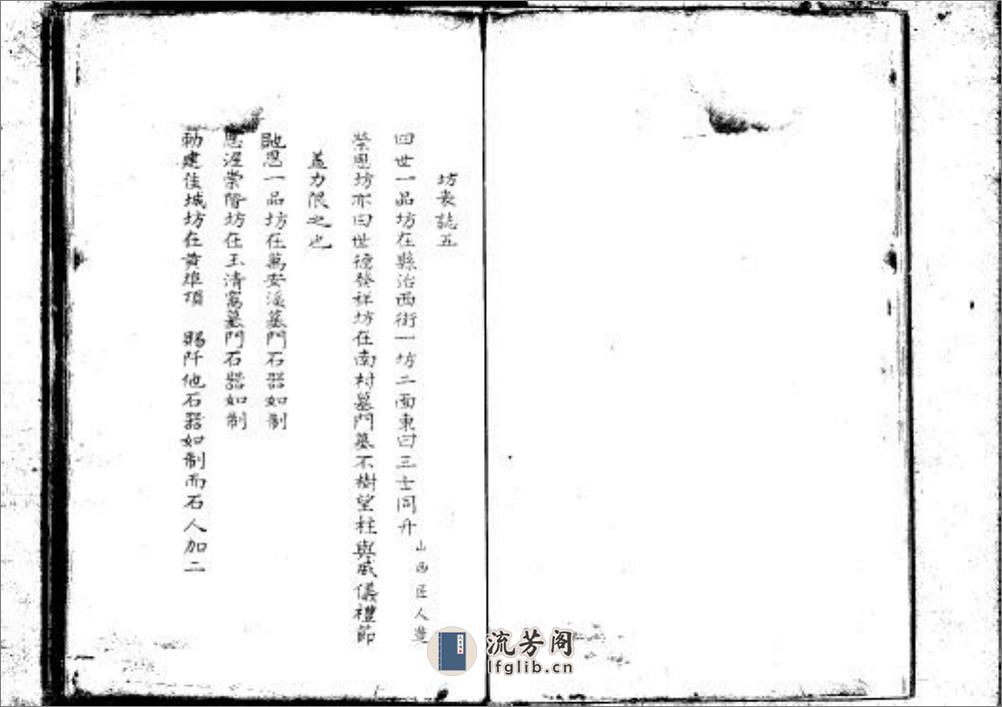 坊表誌五
四世一品坊在縣治西街一坊二面東曰三士同升
山西匠人造
榮恩坊亦曰世德發祥坊在南村墓門墓不樹望柱與威儀禮節
盖力限之也
貤恩一品坊在萬安溪墓門石器如制
恩渥崇階坊在玉清窩墓門石器如制
勅建佳城坊在黄埠頂 賜阡他石器如制而石人加二
流芳阁
lfglib.cn